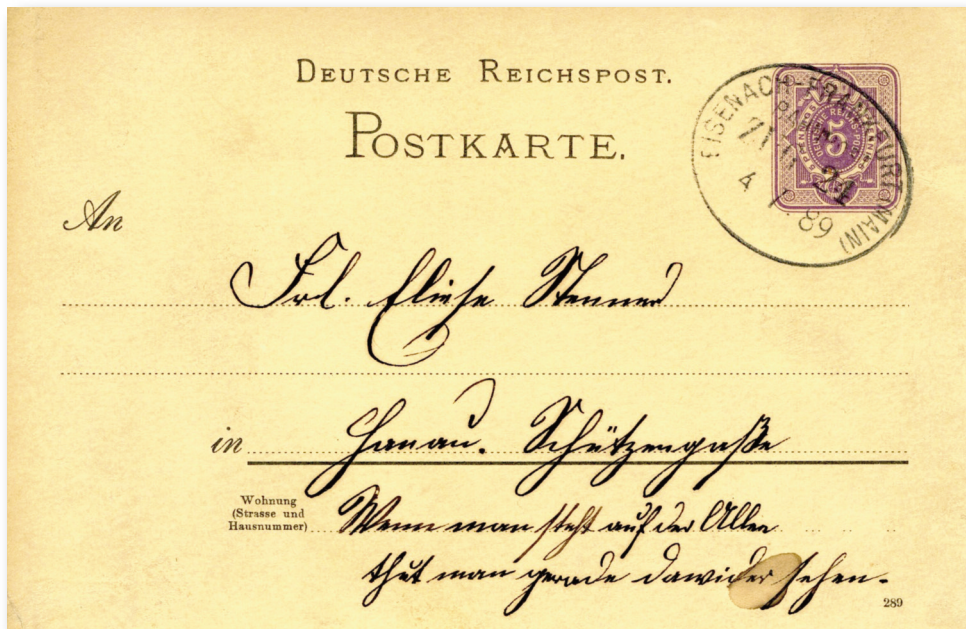 DEUTSCHE REICHSPOST.
POSTKARTE.
EISENACH-FRANKFURT (MAIN)
4 89
5
An
Frl. Eliese Stenner
in Hanau. Schützengaße
Wohnung
(Strasse und
Hausnummer)
Wenn man steht auf der Allee
thut man gerade dawider sehen.
289